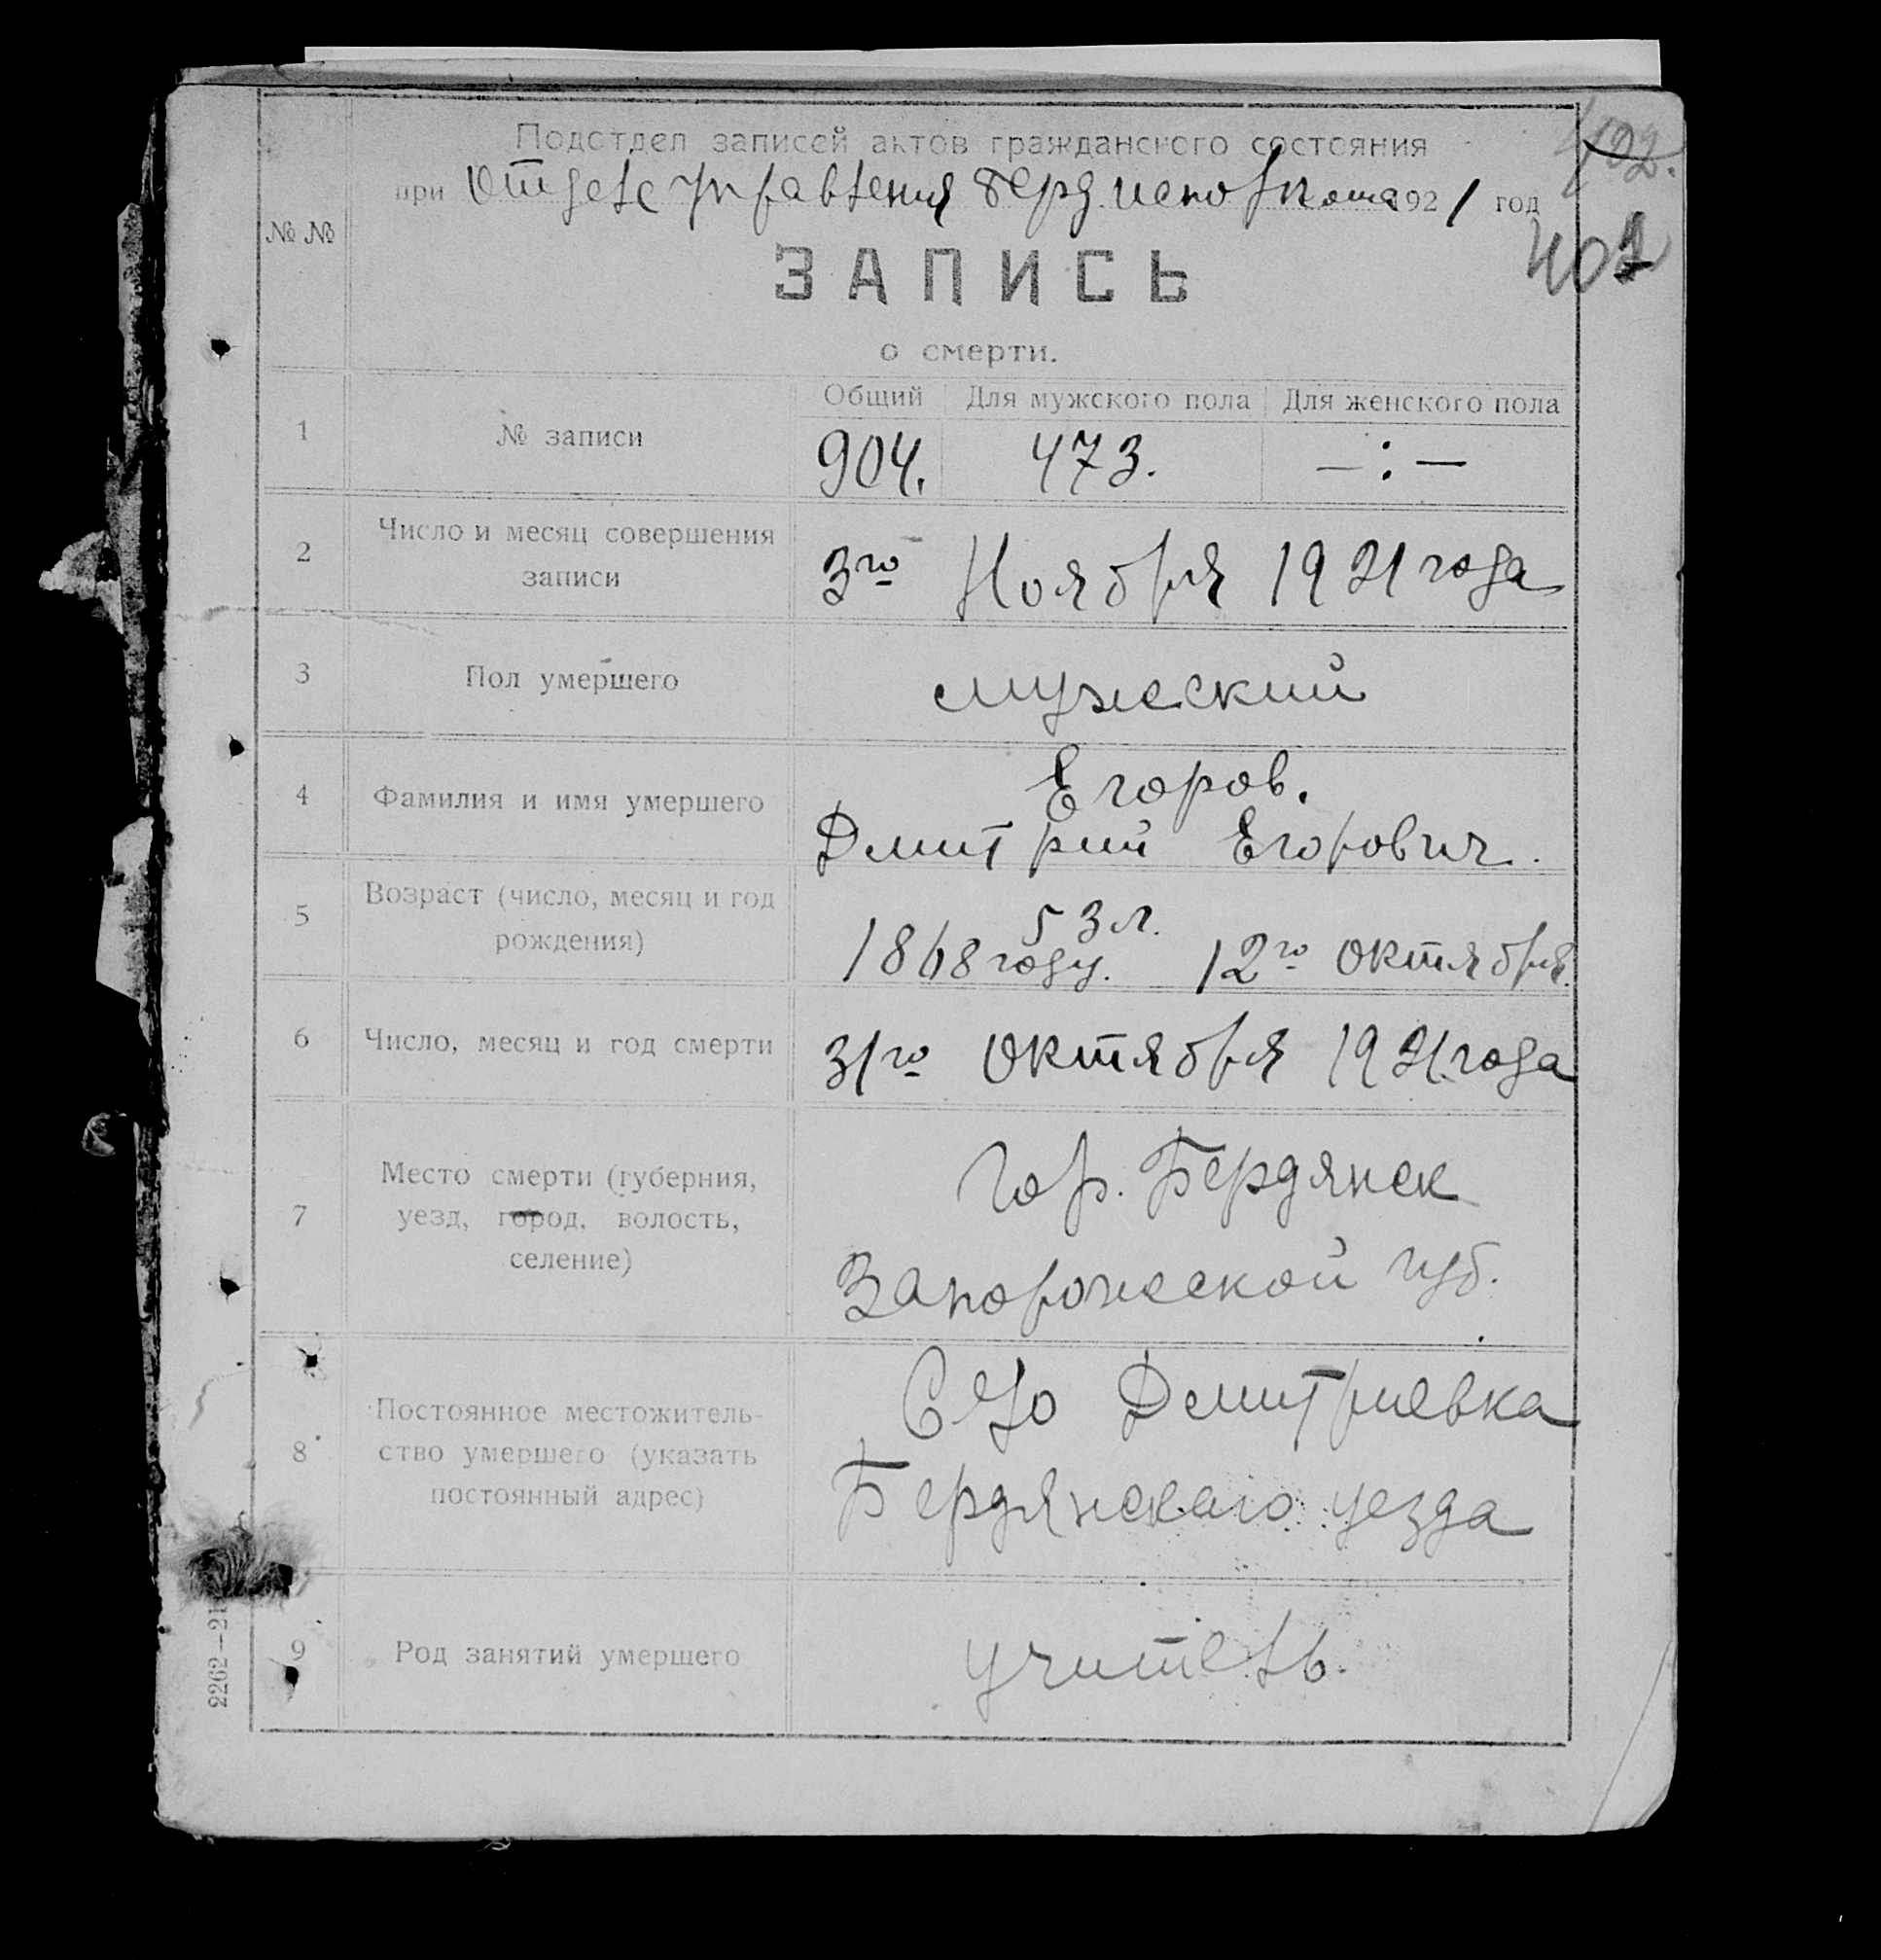 402.
402
Подотдел записей актов гражданского состояния
при Отделе Управления Берд. исполкома 1921 год
№ №
ЗАПИСЬ
о смерти.
1 № записи
Общий Для мужского пола Для женского пола
904. 473. —:—
2 Число и месяц совершения
записи
3го Ноября 1921 года
3 Пол умершего мужеский
4 Фамилия и имя умершего
Егоров.
Дмитрий Егорович.
5 Возраст (число, месяц и год
рождения)
53 л.
1868 году. 12го октября.
6 Число, месяц и год смерти 31го октября 1921 года
7 Место смерти (губерния,
уезд, город, волость,
селение)
Гор. Бердянск
Запорожеской губ.
8 Постоянное местожитель-
ство умершего (указать
постоянный адрес)
Село Дмитриевка
Бердянскаго уезда
9 Род занятий умершего учитель.
2262—21